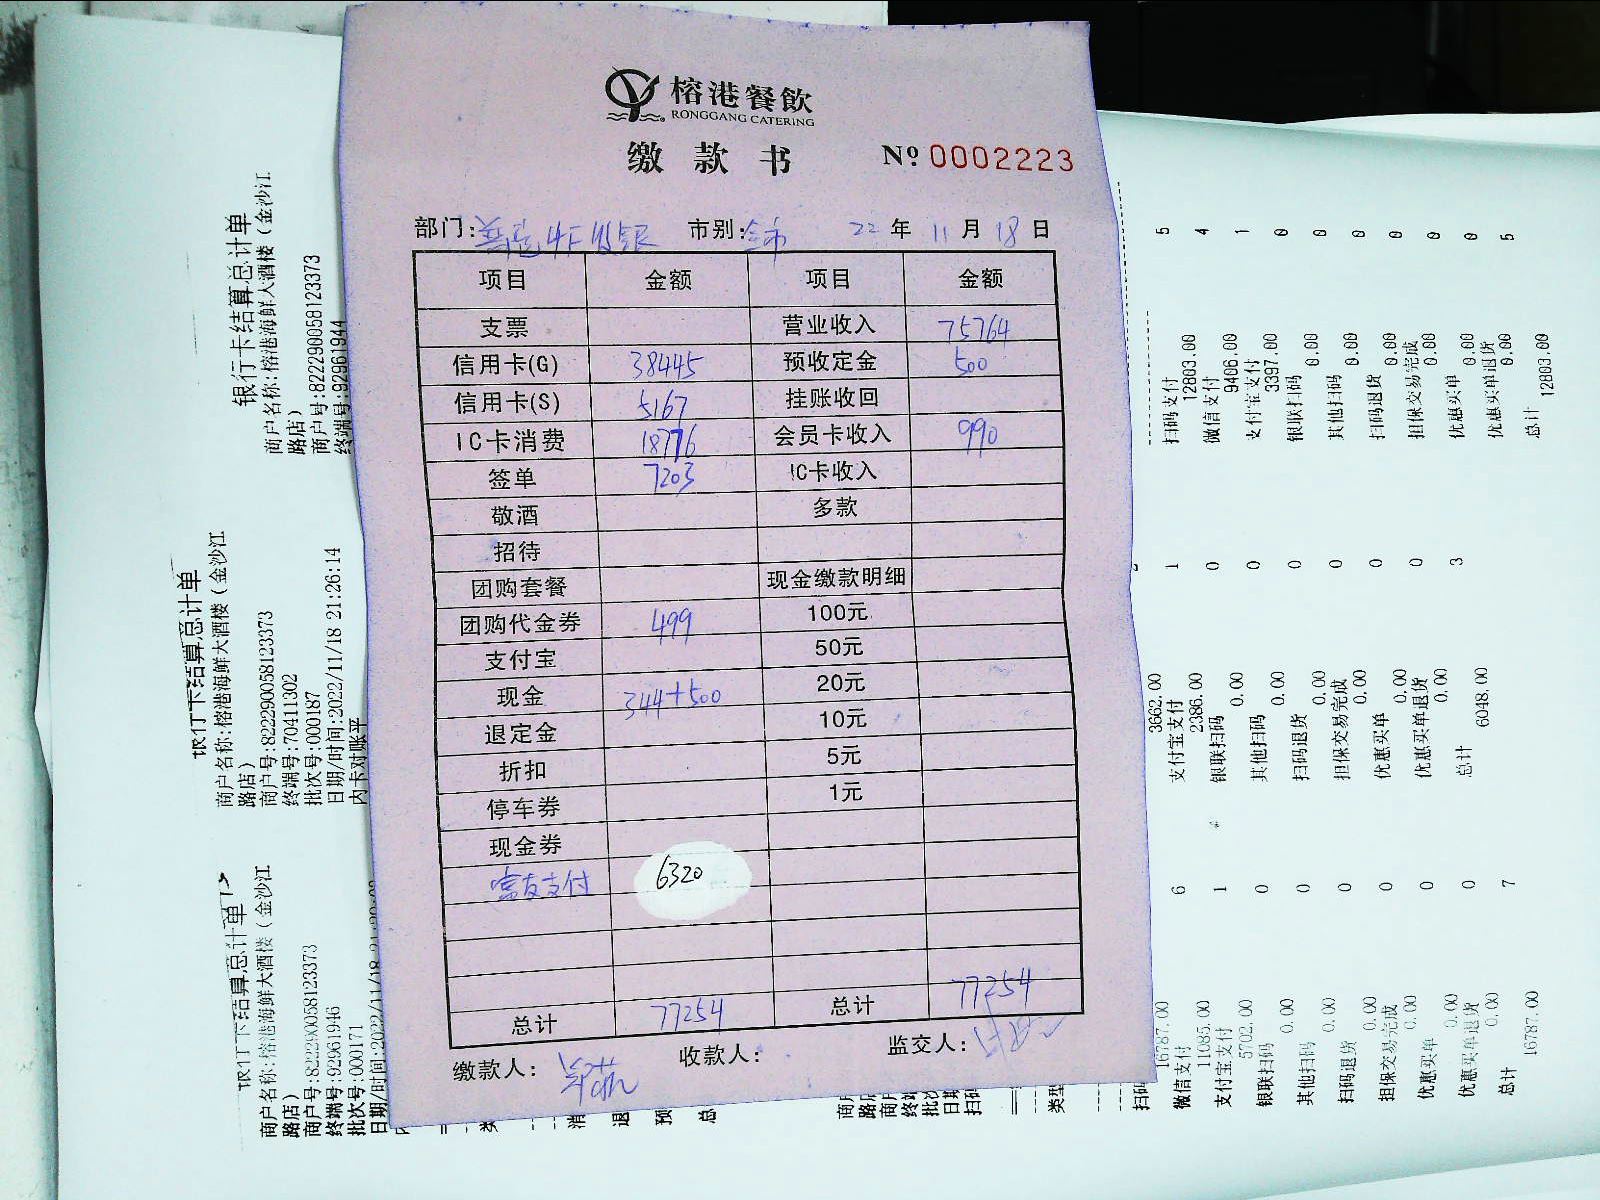 榕港餐飲
RONGGANG CATERING
缴款书 № 0002223
部门: 市别: 22年11月18日
项目 金额 项目 金额
支票 营业收入 75764
信用卡(G) 38445 预收定金 500
信用卡(S) 5167 挂账收回
IC卡消费 18776 会员卡收入 990
签单 7203 IC卡收入
敬酒 多款
招待
团购套餐 现金缴款明细
团购代金券 499 100元
支付宝 50元
现金 344+500 20元
退定金 10元
折扣 5元
停车券 1元
现金券
富友支付 6320
总计 77254 总计 77254
缴款人: 收款人: 监交人:
银行卡结算总计单
商户名称:榕港海鲜大酒楼(金沙江
路店)
商户号:822290058123373
终端号:92961944
5
扫码支付 4
12803.00
微信支付 1
9406.00
支付宝支付 0
3397.00
银联扫码 0
0.00
其他扫码 0
0.00
扫码退货 0
0.00
担保交易完成 0
0.00
优惠买单 0
0.00
优惠买单退货 5
0.00
总计
12803.00
银行卡结算总计单
商户名称:榕港海鲜大酒楼(金沙江
路店)
商户号:822290058123373
终端号:70411302
批次号:000187
日期/时间:2022/11/18 21:26:14
内卡对账平
3662.00
支付宝支付 1
2386.00
银联扫码 0
0.00
其他扫码 0
0.00
扫码退货 0
0.00
担保交易完成 0
0.00
优惠买单 0
0.00
优惠买单退货 0
0.00
总计 3
6048.00
银行卡结算总计单
商户名称:榕港海鲜大酒楼(金沙江
路店)
商户号:822290058123373
终端号:92961946
批次号:000171
日期/时间:2022/11/18
扫码
16787.00
微信支付 6
11085.00
支付宝支付 1
5702.00
银联扫码 0
0.00
其他扫码 0
0.00
扫码退货 0
0.00
担保交易完成 0
0.00
优惠买单 0
0.00
优惠买单退货 0
0.00
总计 7
16787.00